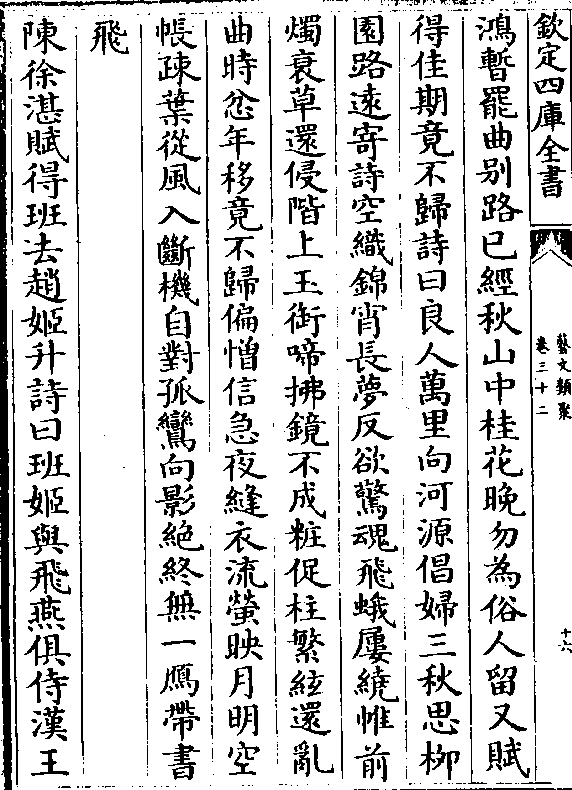 欽定四庫全書
藝文類聚
卷三十二
十六
鴻暫罷曲别路已經秋山中桂花晚勿為俗人留又賦
得佳期竟不歸詩曰良人萬里向河源倡婦三秋思栁
園路逺寄詩空織錦宵長夢反欲驚魂飛蛾屢繞帷前
燭衰草還侵階上玉銜啼拂鏡不成粧促柱繁絃還亂
曲時忿年移竟不歸偏憎信急夜縫衣流螢映月明空
帳疎葉從風入斷機自對孤鸞向影絶終無一鴈帶書
飛
陳徐湛賦得班去趙姬升詩曰班姬與飛燕俱侍漢王